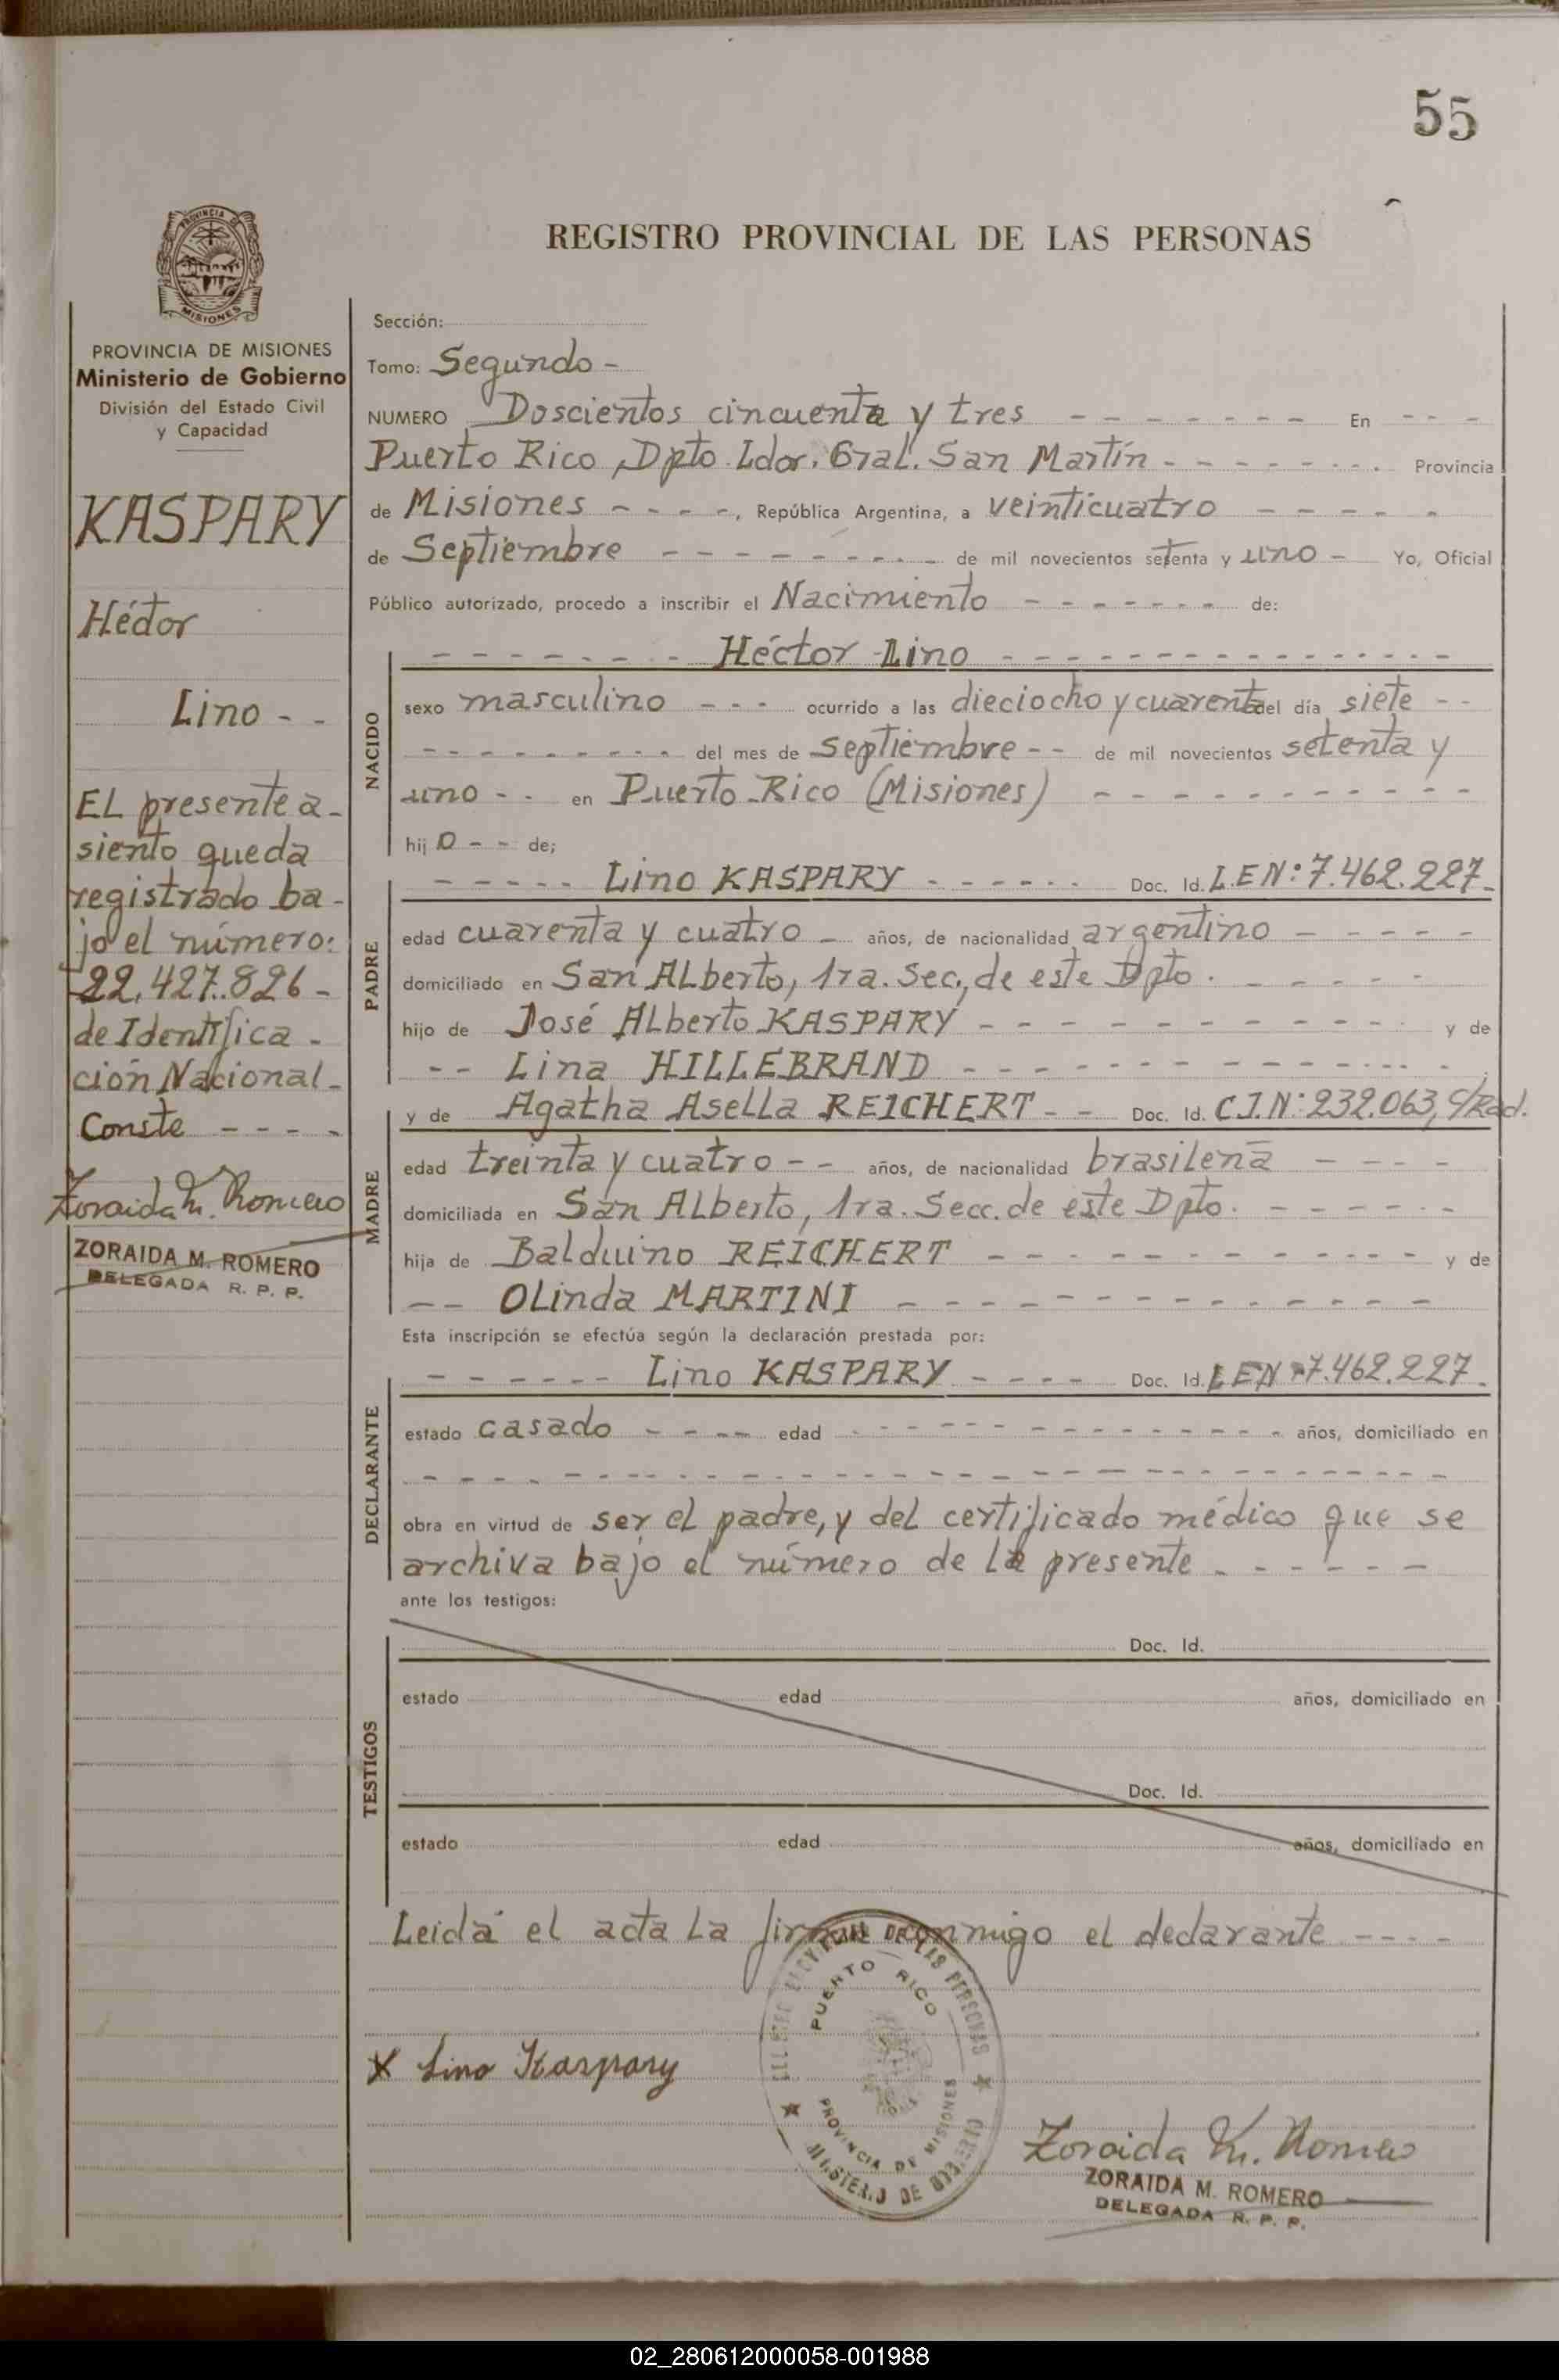 55
REGISTRO PROVINCIAL DE LAS PERSONAS
PROVINCIA DE MISIONES
Ministerio de Gobierno
División del Estado Civil
y Capacidad
KASPARY
Héctor
Lino - -
EL presente a-
siento queda
registrado ba-
jo el número:
22.427.826-
de Identifica-
ción Nacional-
Conste - - - -
Zoraida M. Romero
ZORAIDA M. ROMERO
DELEGADA R. P. P.
Sección:
Tomo: Segundo -
NUMERO Doscientos cincuenta y tres - - - - - - - En - - -
Puerto Rico, Dpto. Ldor. Gral. San Martín - - - - - - - Provincia
de Misiones - - - -, República Argentina, a veinticuatro - - - - -
de Septiembre - - - - - - - - de mil novecientos setenta y uno - Yo, Oficial
Público autorizado, procedo a inscribir el Nacimiento - - - - - - - de:
- - - - - - - Héctor Lino - - - - - - - - - - - - - -
NACIDO
sexo masculino - - - ocurrido a las dieciocho y cuarenta del día siete - -
- - - - - - - - - del mes de septiembre - - de mil novecientos setenta y
uno - - en Puerto Rico (Misiones) - - - - - - - - - - -
hij o - - de;
- - - - - Lino KASPARY - - - - - - Doc. Id. L.E.N: 7.462.227.
PADRE
edad cuarenta y cuatro - años, de nacionalidad argentino - - - - -
domiciliado en San ALberto, 1ra. Sec., de este Dpto. - - - - -
hijo de José ALberto KASPARY - - - - - - - - - - - - y de
- - Lina HILLEBRAND - - - - - - - - - - - - -
y de Agatha Asella REICHERT - - Doc. Id. C.I.N: 232.063, c/Rad.
MADRE
edad treinta y cuatro - - años, de nacionalidad brasileña - - - -
domiciliada en San ALberto, 1ra. Secc. de este Dpto. - - - - - -
hija de Balduino REICHERT - - - - - - - - - - - - y de
- - OLinda MARTINI - - - - - - - - - - - - - - -
Esta inscripción se efectúa según la declaración prestada por:
- - - - - - Lino KASPARY - - - - Doc. Id. L.E.N 7.462.227.
DECLARANTE
estado casado - - - - edad - - - - - - - - - - - - - años, domiciliado en
- - - - - - - - - - - - - - - - - - - - - - - - - - - - -
obra en virtud de ser el padre, y del certificado médico que se
archiva bajo el número de la presente - - - - - -
ante los testigos:
TESTIGOS
Doc. Id.
estado edad años, domiciliado en
Doc. Id.
estado edad años, domiciliado en
Leida el acta La firma conmigo el declarante - - - -
PUERTO RICO
PROVINCIA DE MISIONES
X Lino Kaspary
Zoraida M. Romero
ZORAIDA M. ROMERO
DELEGADA R. P. P.
02_280612000058-001988